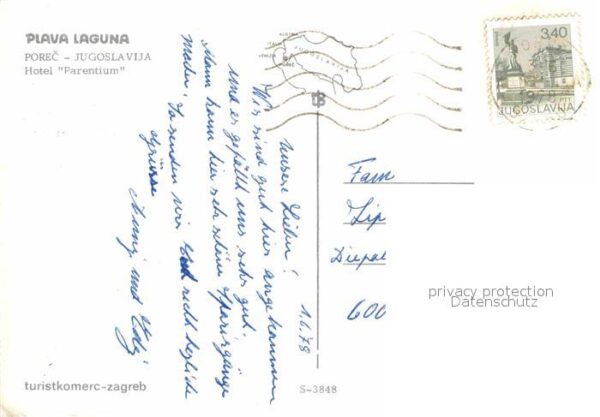 PLAVA LAGUNA
POREČ - JUGOSLAVIJA
Hotel "Parentium"
JUGOSLAVIJA
3,40
JUGOSLAVIJA
1.6.78
Unsere Lieben!
Wir sind gut hier angekommen
und es gefällt uns sehr gut.
Mann kann hier sehr schöne Spaziergänge
machen. So senden wir Euch recht herzliche
Grüsse
Anny und
Fam
Lip
600
privacy protection
Datenschutz
turistkomerc-zagreb
S-3848